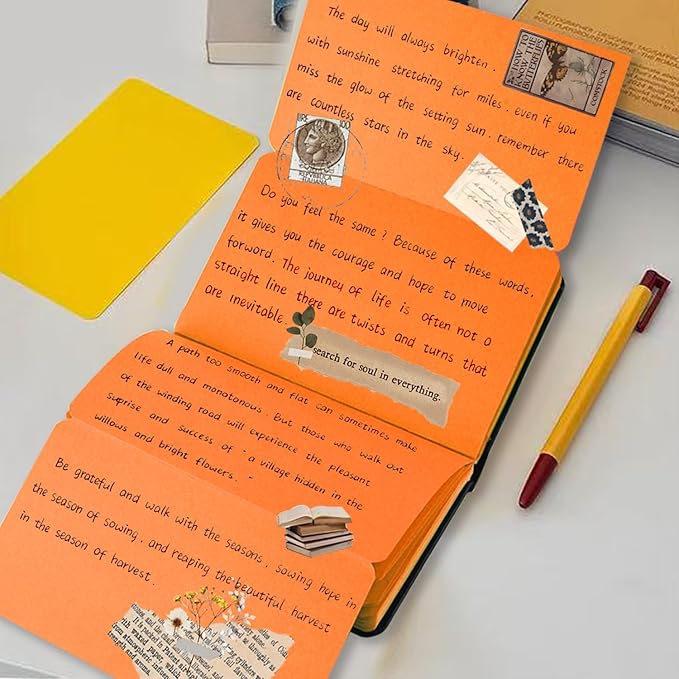 PHOTOGRAPHER·DESIGNER·
The day will always brighten.
with sunshine stretching for miles. even if you
miss the glow of the setting sun. remember there
are countless stars in the sky.
HOW TO
KNOW THE
BUTTERFLIES
COMSTOCK
100
REPVBBLICA
ITALIANA
Do you feel the same? Because of these words,
it gives you the courage and hope to move
forword. The journey of life is often not a
straight line there are twists and turns that
are inevitable.
search for soul in everything.
A path too smooth and flat can sometimes make
life dull and monotonous. But those who walk out
of the winding road will experience the pleasant
suprise and success of "a village hidden in the
willows and bright flowers."
Be grateful and walk with the seasons. sowing hope in
the season of sowing, and reaping the beautiful harvest
in the season of harvest.